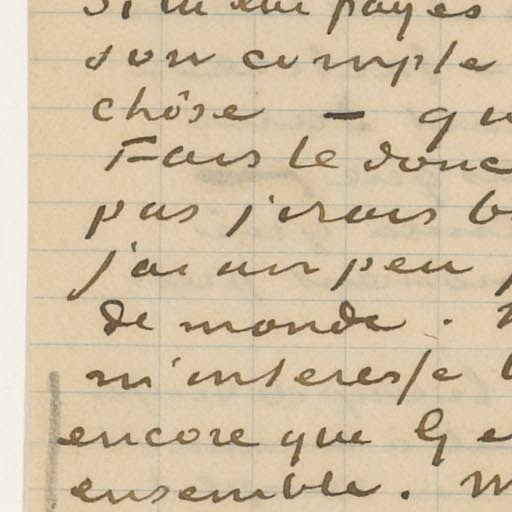 payes
son compte
chôse — qu
Fais le donc
pas j'irais b
j'ai un peu p
de monde.
m'interesse
encore que G e
ensemble. M